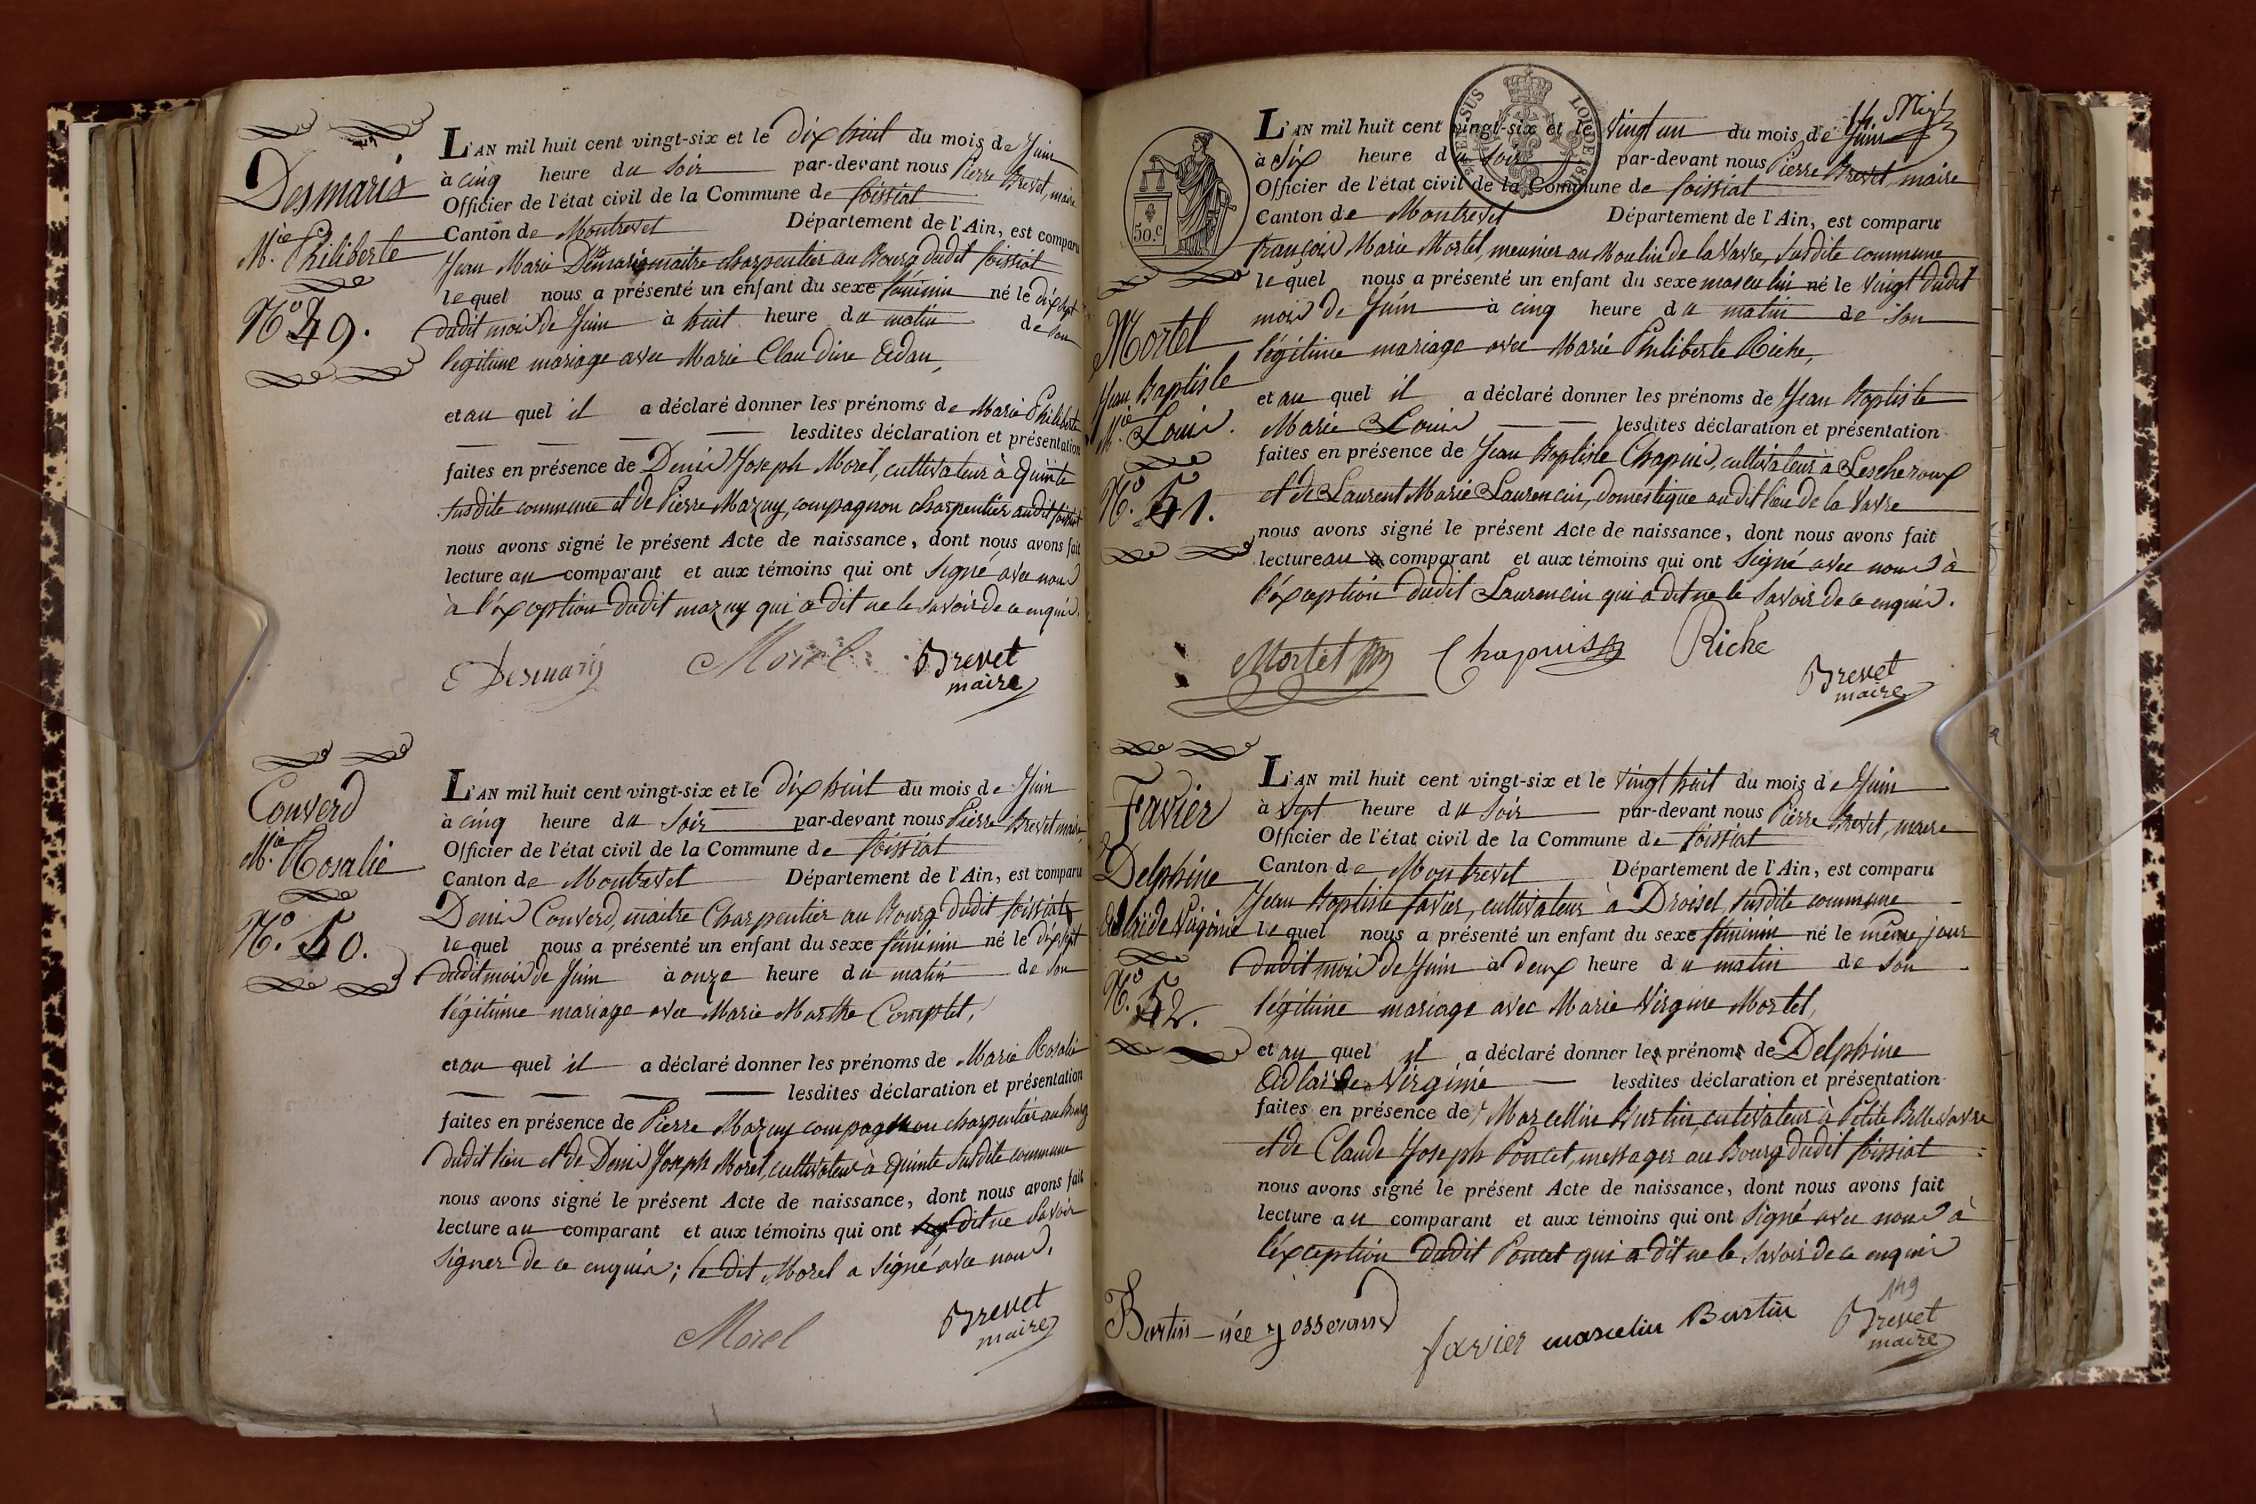 Desmaris
Mie. Philiberte
No. 49.
L'AN mil huit cent vingt-six et le Dix huit du mois de Juin
à cinq heure du soir par-devant nous Pierre Brevet, maire
Officier de l'état civil de la Commune de foissiat
Canton de Montrevel Département de l'Ain, est comparu
Jean Marie Desmaris maitre charpentier au Bourg dudit foissiat
lequel nous a présenté un enfant du sexe féminin né le dix sept
dudit mois de Juin à huit heure du matin de son
légitime mariage avec Marie Claudine
et au quel il a déclaré donner les prénoms de Marie Philiberte
lesdites déclaration et présentation
faites en présence de Denis Joseph Morel, cultivateur à Quinte
susdite commune et de Pierre Mazuy, compagnon charpentier audit foissiat
nous avons signé le présent Acte de naissance, dont nous avons fait
lecture au comparant et aux témoins qui ont signé avec nous
à l'éxception dudit mazuy qui a dit ne le savoir de ce enquis.
Desmaris Morel Brevet
maire
Couverd
Mie. Rosalie
No. 50.
L'AN mil huit cent vingt-six et le Dix huit du mois de Juin
à cinq heure du soir par-devant nous Pierre Brevet maire
Officier de l'état civil de la Commune de foissiat
Canton de Montrevel Département de l'Ain, est comparu
Denis Couverd, maitre Charpentier au Bourg dudit foissiat
lequel nous a présenté un enfant du sexe féminin né le dix sept
dudit mois de Juin à onze heure du matin de son
légitime mariage avec Marie Marthe Comptet,
et au quel il a déclaré donner les prénoms de Marie Rosalie
lesdites déclaration et présentation
faites en présence de Pierre Mazuy compagnon charpentier au Bourg
dudit lieu et de Denis Joseph Morel, cultivateur à Quinte susdite commune
nous avons signé le présent Acte de naissance, dont nous avons fait
lecture au comparant et aux témoins qui ont dit ne savoir
signer de ce enquis; le dit Morel a signé avec nous.
Morel Brevet
maire
50.c
Mortel
Jean Baptiste
Mie. Louis.
No. 51.
L'AN mil huit cent vingt-six et le Vingt un du mois de Juin
à six heure du soir par-devant nous Pierre Brevet, maire
Officier de l'état civil de la Commune de foissiat
Canton de Montrevel Département de l'Ain, est comparu
françois Marie Mortel, meunier au Moulin de la Vavre, susdite commune
lequel nous a présenté un enfant du sexe masculin né le vingt dudit
mois de Juin à cinq heure du matin de son
légitime mariage avec Marie Philiberte Riche,
et au quel il a déclaré donner les prénoms de Jean Baptiste
Marie Louis lesdites déclaration et présentation
faites en présence de Jean Baptiste Chapuis, cultivateur à Lescheroux
et de Laurent Marie Laurencin, domestique audit lieu de la Vavre
nous avons signé le présent Acte de naissance, dont nous avons fait
lecture au comparant et aux témoins qui ont signé avec nous à
l'éxception dudit Laurencin qui a dit ne le savoir de ce enquis.
Mortel Chapuis Riche
Brevet
maire
Favier
Delphine
Adlaïde Virginie
No. 52.
L'AN mil huit cent vingt-six et le vingt huit du mois de Juin
à sept heure du soir par-devant nous Pierre Brevet, maire
Officier de l'état civil de la Commune de foissiat
Canton de Montrevel Département de l'Ain, est comparu
Jean Baptiste favier, cultivateur à Droisel, susdite commune
lequel nous a présenté un enfant du sexe féminin né le même jour
dudit mois de Juin à deux heure du matin de son
légitime mariage avec Marie Virgine Mortel,
et au quel il a déclaré donner les prénoms de Delphine
Adlaïde Virginie lesdites déclaration et présentation
faites en présence de Marcellin Burtin, cultivateur à Petite Bellevavre
et de Claude Joseph Poncet, messager au Bourg dudit foissiat
nous avons signé le présent Acte de naissance, dont nous avons fait
lecture au comparant et aux témoins qui ont signé avec nous à
l'éxception dudit Poncet qui a dit ne le savoir de ce enquis
149
Burtin née josserand favier marcelin Burtin Brevet
maire